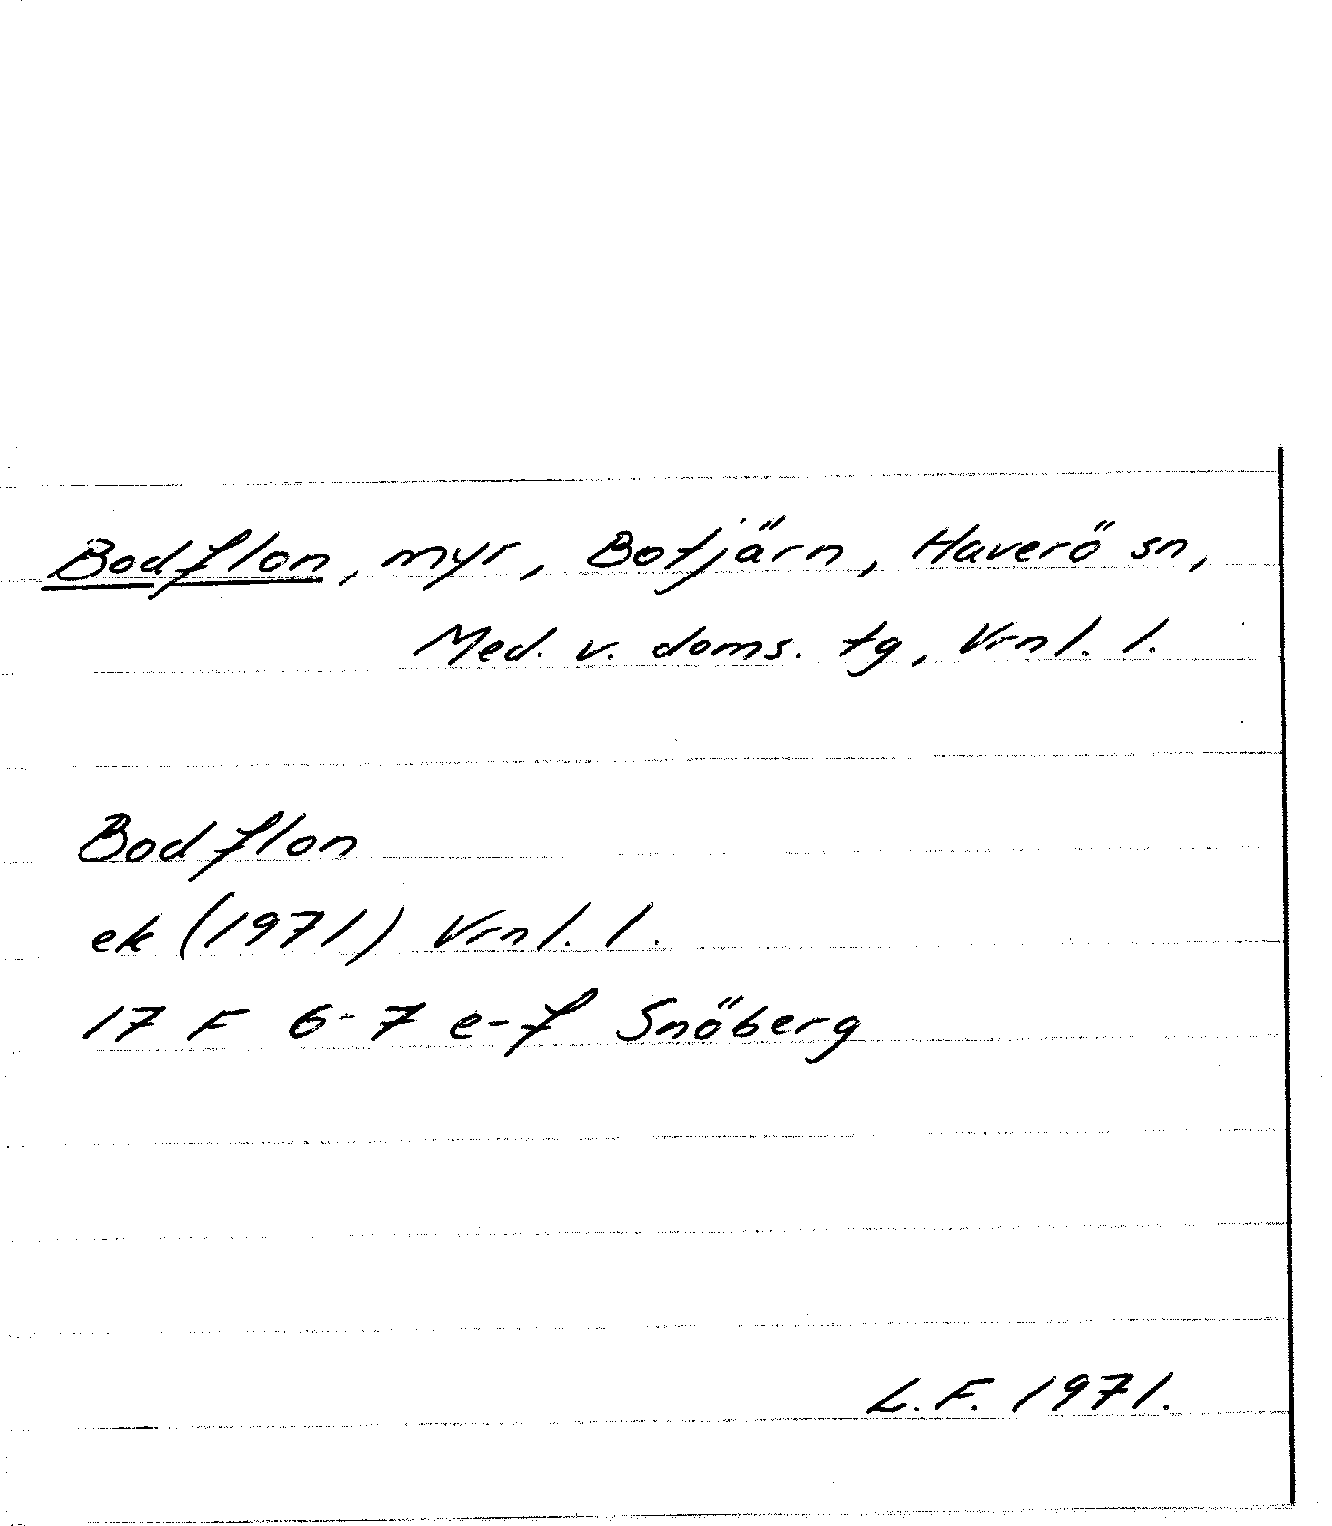 Bodflon, myr, Botjärn, Haverö sn,
Med. v. doms. tg, Vrnl. l.
Bodflon
ek (1971) Vrnl. l.
17 F 6-7 e-f Snöberg
L.F. 1971.